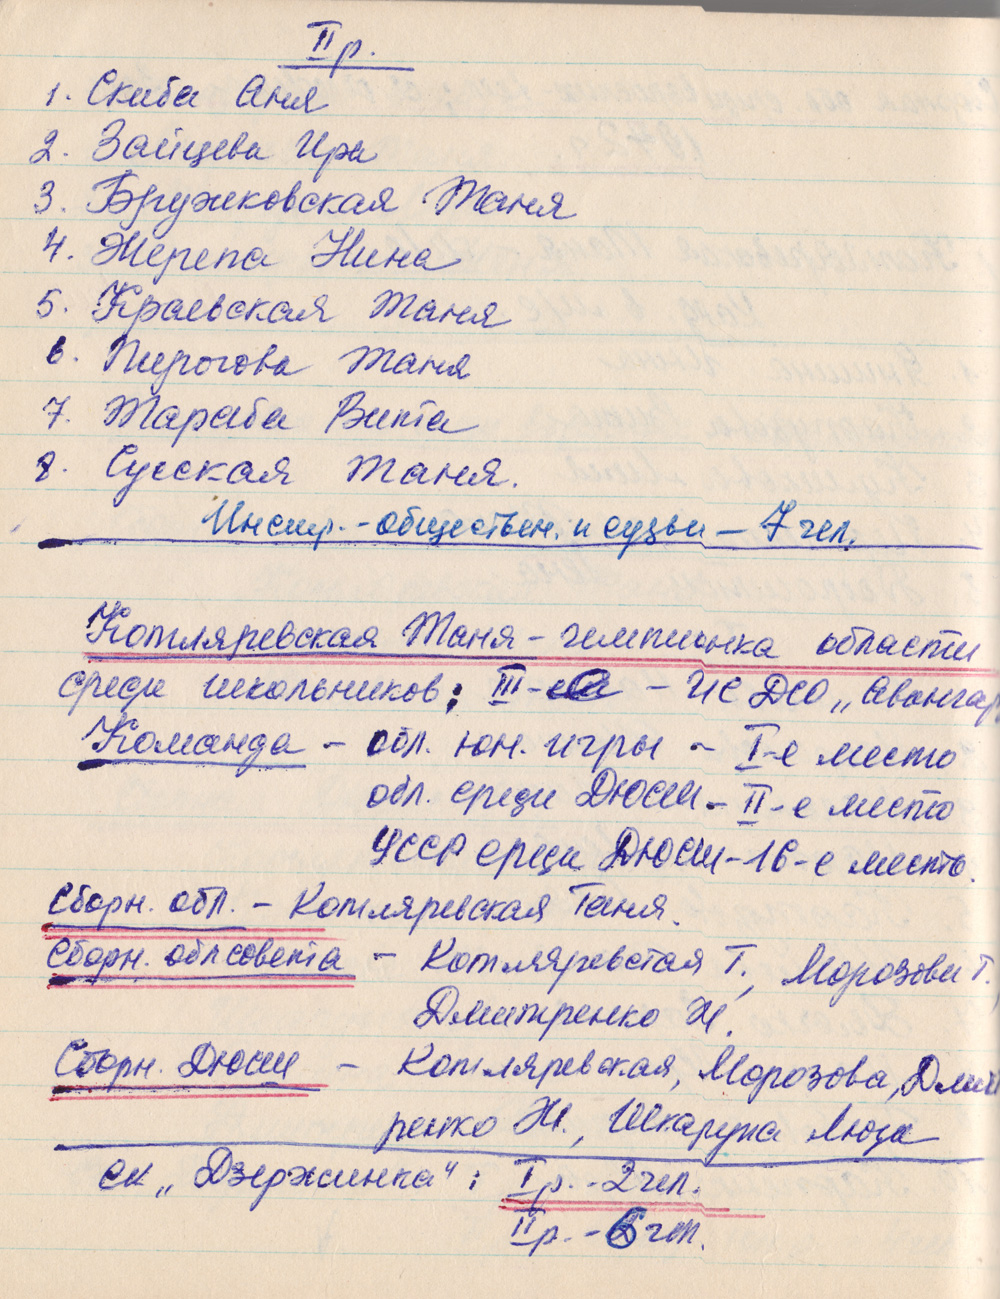 II р.
1. Скиба Аня
2. Зайцева Ира
3. Бружковская Таня
4. Жерепа Нина
5. Краевская Таня
6. Пирогова Таня
7. Тараба Вита
8. Сусская Таня.
Инстр.-обществен. и судьи - 7 чел.
Котляревская Таня - чемпионка области
среди школьников; III-е - ЦС ДСО „Авангар
Команда - обл. юн. игры - I-е место
обл. среди ДЮСШ - II-е место
УССР среди ДЮСШ - 16-е место.
Сборн. обл. - Котляревская Таня.
Сборн. облсовета - Котляревская Т., Морозова Т.,
Дмитренко Н.
Сборн. ДЮСШ - Котляревская, Морозова, Дмит
ренко Н., Шкарупа Люда
ск „Дзержинка“: I р. - 2 чел.
II р. - 6 чел.